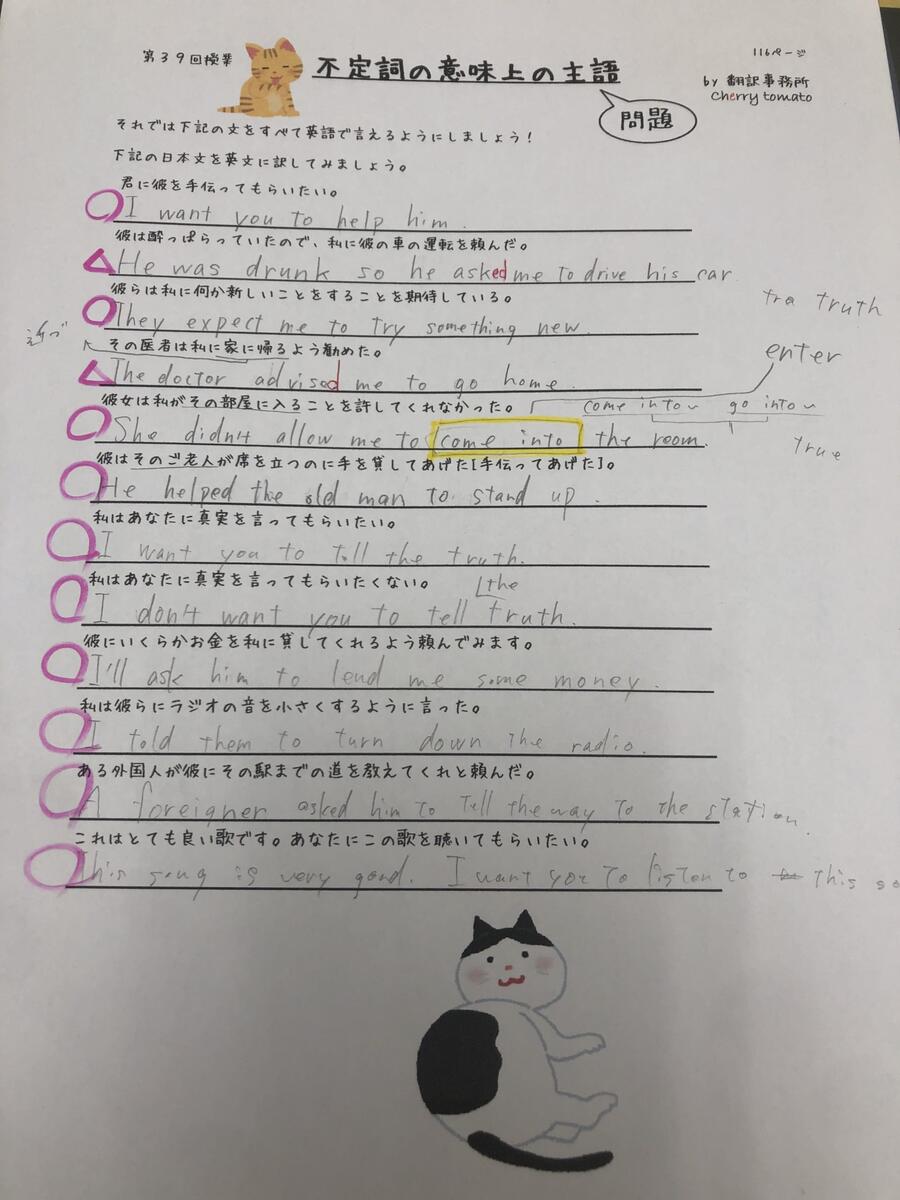 第39回授業
不定詞の意味上の主語
116ページ
by 翻訳事務所
Cherry tomato
問題
それでは下記の文をすべて英語で言えるようにしましょう！
下記の日本文を英文に訳してみましょう。
君に彼を手伝ってもらいたい。
I want you to help him.
彼は酔っぱらっていたので、私に彼の車の運転を頼んだ。
He was drunk so he asked me to drive his car
彼らは私に何か新しいことをすることを期待している。
They expect me to try something new.
tra truth
その医者は私に家に帰るよう勧めた。
The doctor advised me to go home.
enter
彼女は私がその部屋に入ることを許してくれなかった。
come into~ go into~
She didn't allow me to come into the room.
true
彼はそのご老人が席を立つのに手を貸してあげた[手伝ってあげた]。
He helped the old man to stand up.
私はあなたに真実を言ってもらいたい。
I want you to tell the truth.
私はあなたに真実を言ってもらいたくない。
the
I don't want you to tell truth.
彼にいくらかお金を私に貸してくれるよう頼んでみます。
I'll ask him to lend me some money.
私は彼らにラジオの音を小さくするように言った。
I told them to turn down the radio.
ある外国人が彼にその駅までの道を教えてくれと頼んだ。
A foreigner asked him to tell the way to the station.
これはとても良い歌です。あなたにこの歌を聴いてもらいたい。
This song is very good. I want you to listen to this so